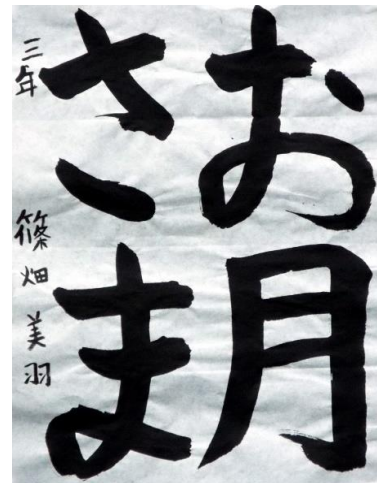 お月
さま
三年 篠畑美羽